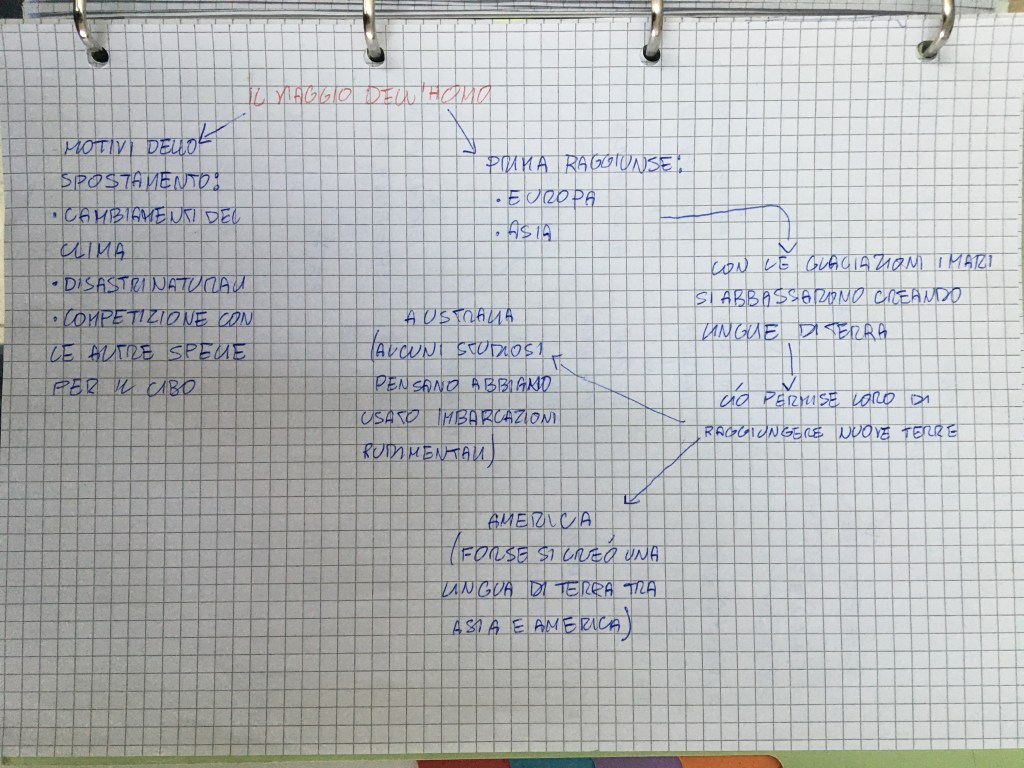 IL VIAGGIO DELL'HOMO
MOTIVI DELLO
SPOSTAMENTO:
• CAMBIAMENTI DEL
CLIMA
• DISASTRI NATURALI
• COMPETIZIONE CON
LE ALTRE SPECIE
PER IL CIBO
PRIMA RAGGIUNSE:
• EUROPA
• ASIA
CON LE GLACIAZIONI I MARI
SI ABBASSARONO CREANDO
LINGUE DI TERRA
CIÓ PERMISE LORO DI
RAGGIUNGERE NUOVE TERRE
AUSTRALIA
(ALCUNI STUDIOSI
PENSANO ABBIANO
USATO IMBARCAZIONI
RUDIMENTALI)
AMERICA
(FORSE SI CREÓ UNA
LINGUA DI TERRA TRA
ASIA E AMERICA)